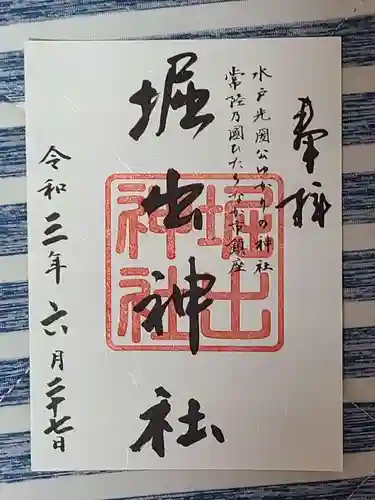 奉拝
水戸光圀公ゆかりの神社
常陸乃國ひたちなか市鎮座
堀出神社
堀出神社
令和三年六月二十七日